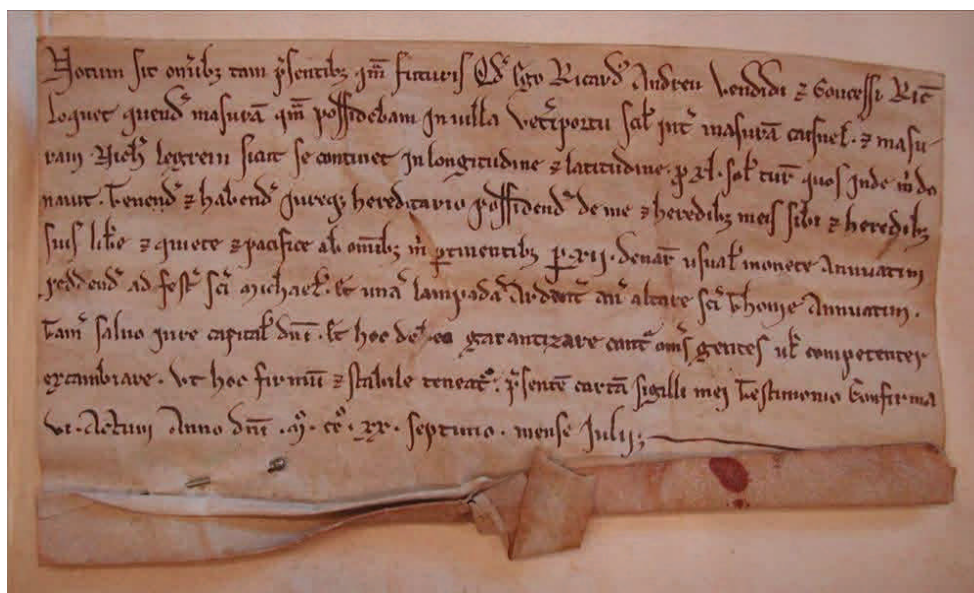 Notum sit om̄ibꝫ tam p̄sentibꝫ qm̄ futuris Qd̓ Ego Ricard̓ Andreu Vendidi ⁊ Concessi Ric̄
loquet quend̓ masurā qm̄ possidebam In uilla Vet̓iportu scil̓ int̓ masurā ⁊ masu-
ram Rich̓ legrein sicut se continet In longitudine ⁊ latitudine · ꝓ xl · sol̓ tur̓ quos Inde m̓ do
nauit · Tenend̓ ⁊ habend̓ Jureqꝫ hereditario possidend̓ de me ⁊ heredibꝫ meis sibi ⁊ heredibꝫ
suis lib̓e ⁊ quiete ⁊ pacifice ab om̄ibꝫ m̓ ꝑtinentibꝫ ꝑ · xii · denar̓ usual̓ monete Annuatim
reddend̓ ad fest̓ sc̄i Michael̓ · Et una̓ lampada̓ Ardent̓ an̓ altare sc̄i Thome Annuatim ·
Tam̓ saluo iure capital̓ dn̄i · Et hoc deb̓ eo garantizare cont̓ om̄s gentes ul̓ competenter
excambiare · Vt hoc firmū ⁊ stabile teneat᷑ · p̄sentē cartā sigilli mei Testimonio Confirma
ui · Actum Anno dn̄i · M̊ · cc̊ · xx · septimo · mense Julij ;